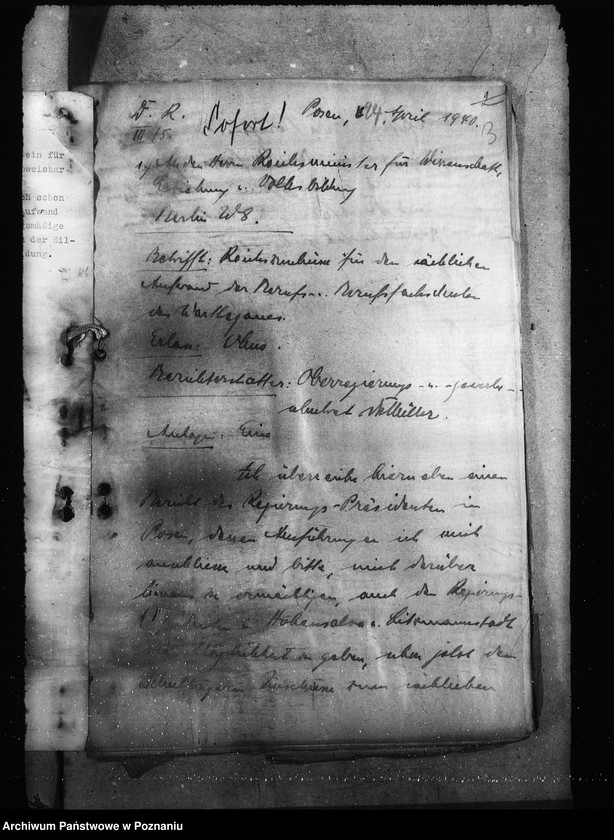 ein für
bweisbar
ch schon
ufwand
gsmäßige
n der Bil-
dung.
D. R.
III/5.
Sofort! Posen, 04. April 1940.
3
An den Herrn Reichsminister für Wissenschaft,
Erziehung u. Volksbildung
Berlin W8.
Betrifft: Reichszuschüsse für den sächlichen
Aufwand der Berufs- u. Berufsfachschulen
des Warthegaues.
Erlass: Ohne.
Berichterstatter: Oberregierungs- u. -gewerbe-
schulrat
Anlage: Eine
Ich überreiche hierneben einen
Bericht des Regierungs-Präsidenten in
Posen, dessen Ausführungen ich mich
anschliesse und bitte, mich darüber
hinaus zu ermächtigen, auch den Regierungs-
in Hohensalza u. Litzmannstadt
Möglichkeit zu geben, schon jetzt den
Schulträgern Zuschüsse zum sächlichen
Archiwum Państwowe w Poznaniu